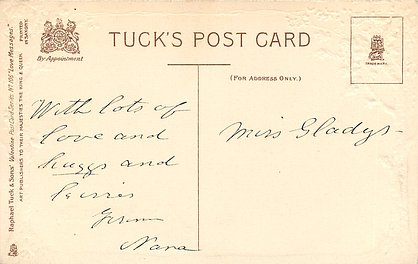 TUCK'S POST CARD
By Appointment
(FOR ADDRESS ONLY.)
TRADE MARK
With lots of
love and
huggs and
kisses
from
Nana
Miss Gladys
Raphael Tuck & Sons' Valentine Post Card Series Nº 106 "Love Messages."
ART PUBLISHERS TO THEIR MAJESTIES THE KING & QUEEN
PRINTED
IN SAXONY